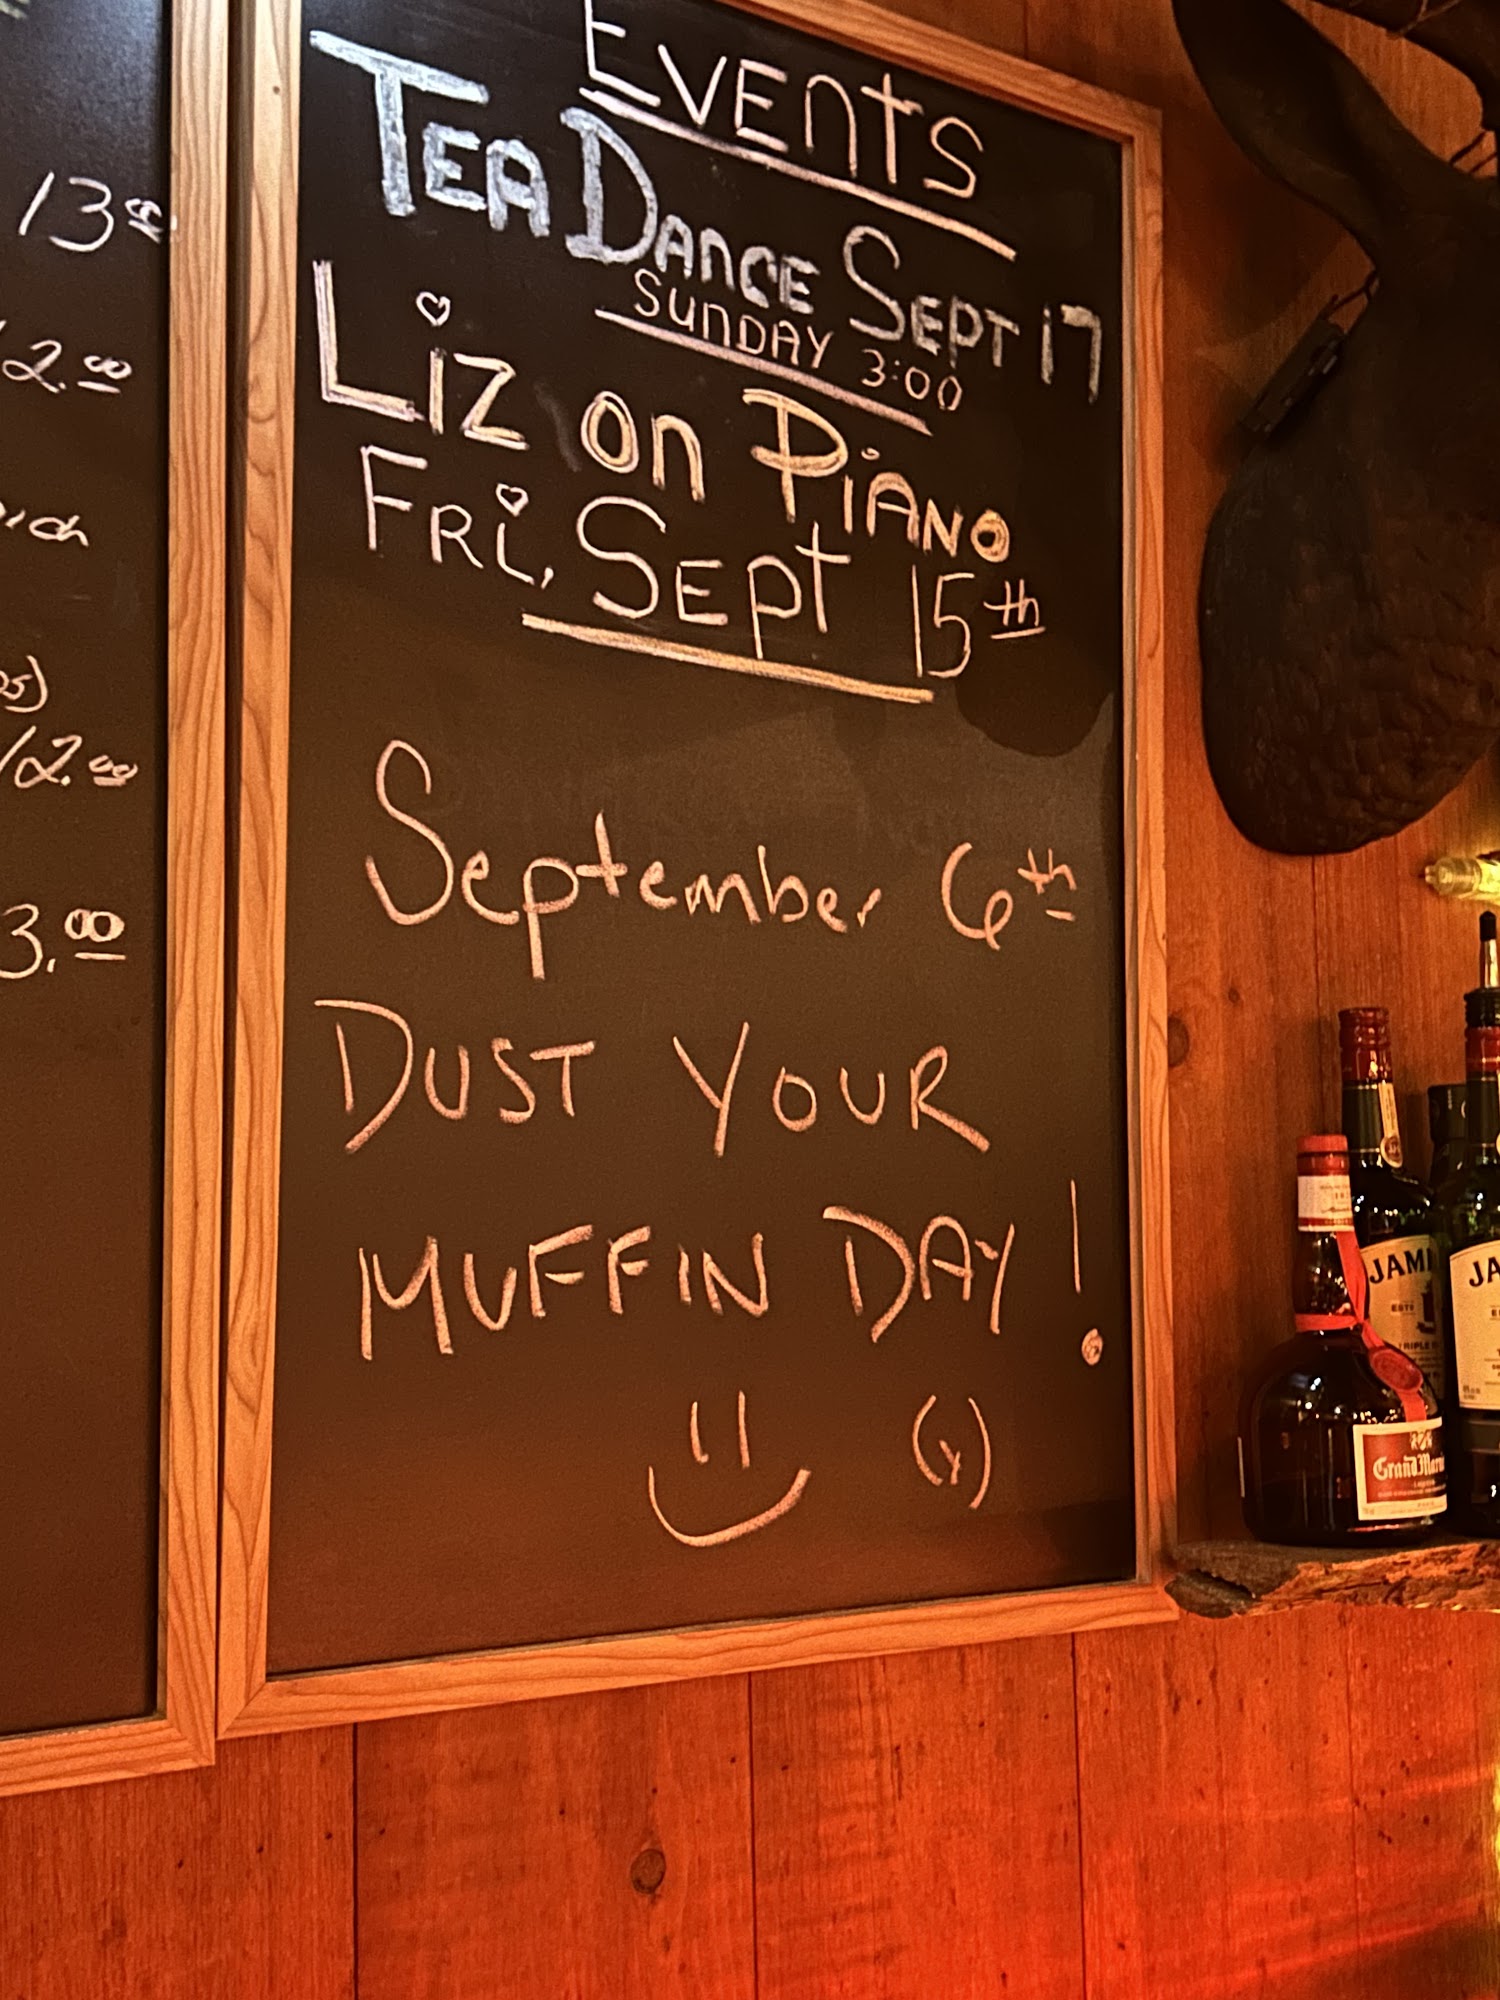 13.00
12.00
12.00
3.00
EVENTS
TEA DANCE SEPT 17
SUNDAY 3:00
LIZ ON PIANO
FRI, SEPT 15th
September 6th
DUST YOUR
MUFFIN DAY!
(Y)
JAM
ESTD
TRIPLE
JA
Grand Marni
LIQUEUR